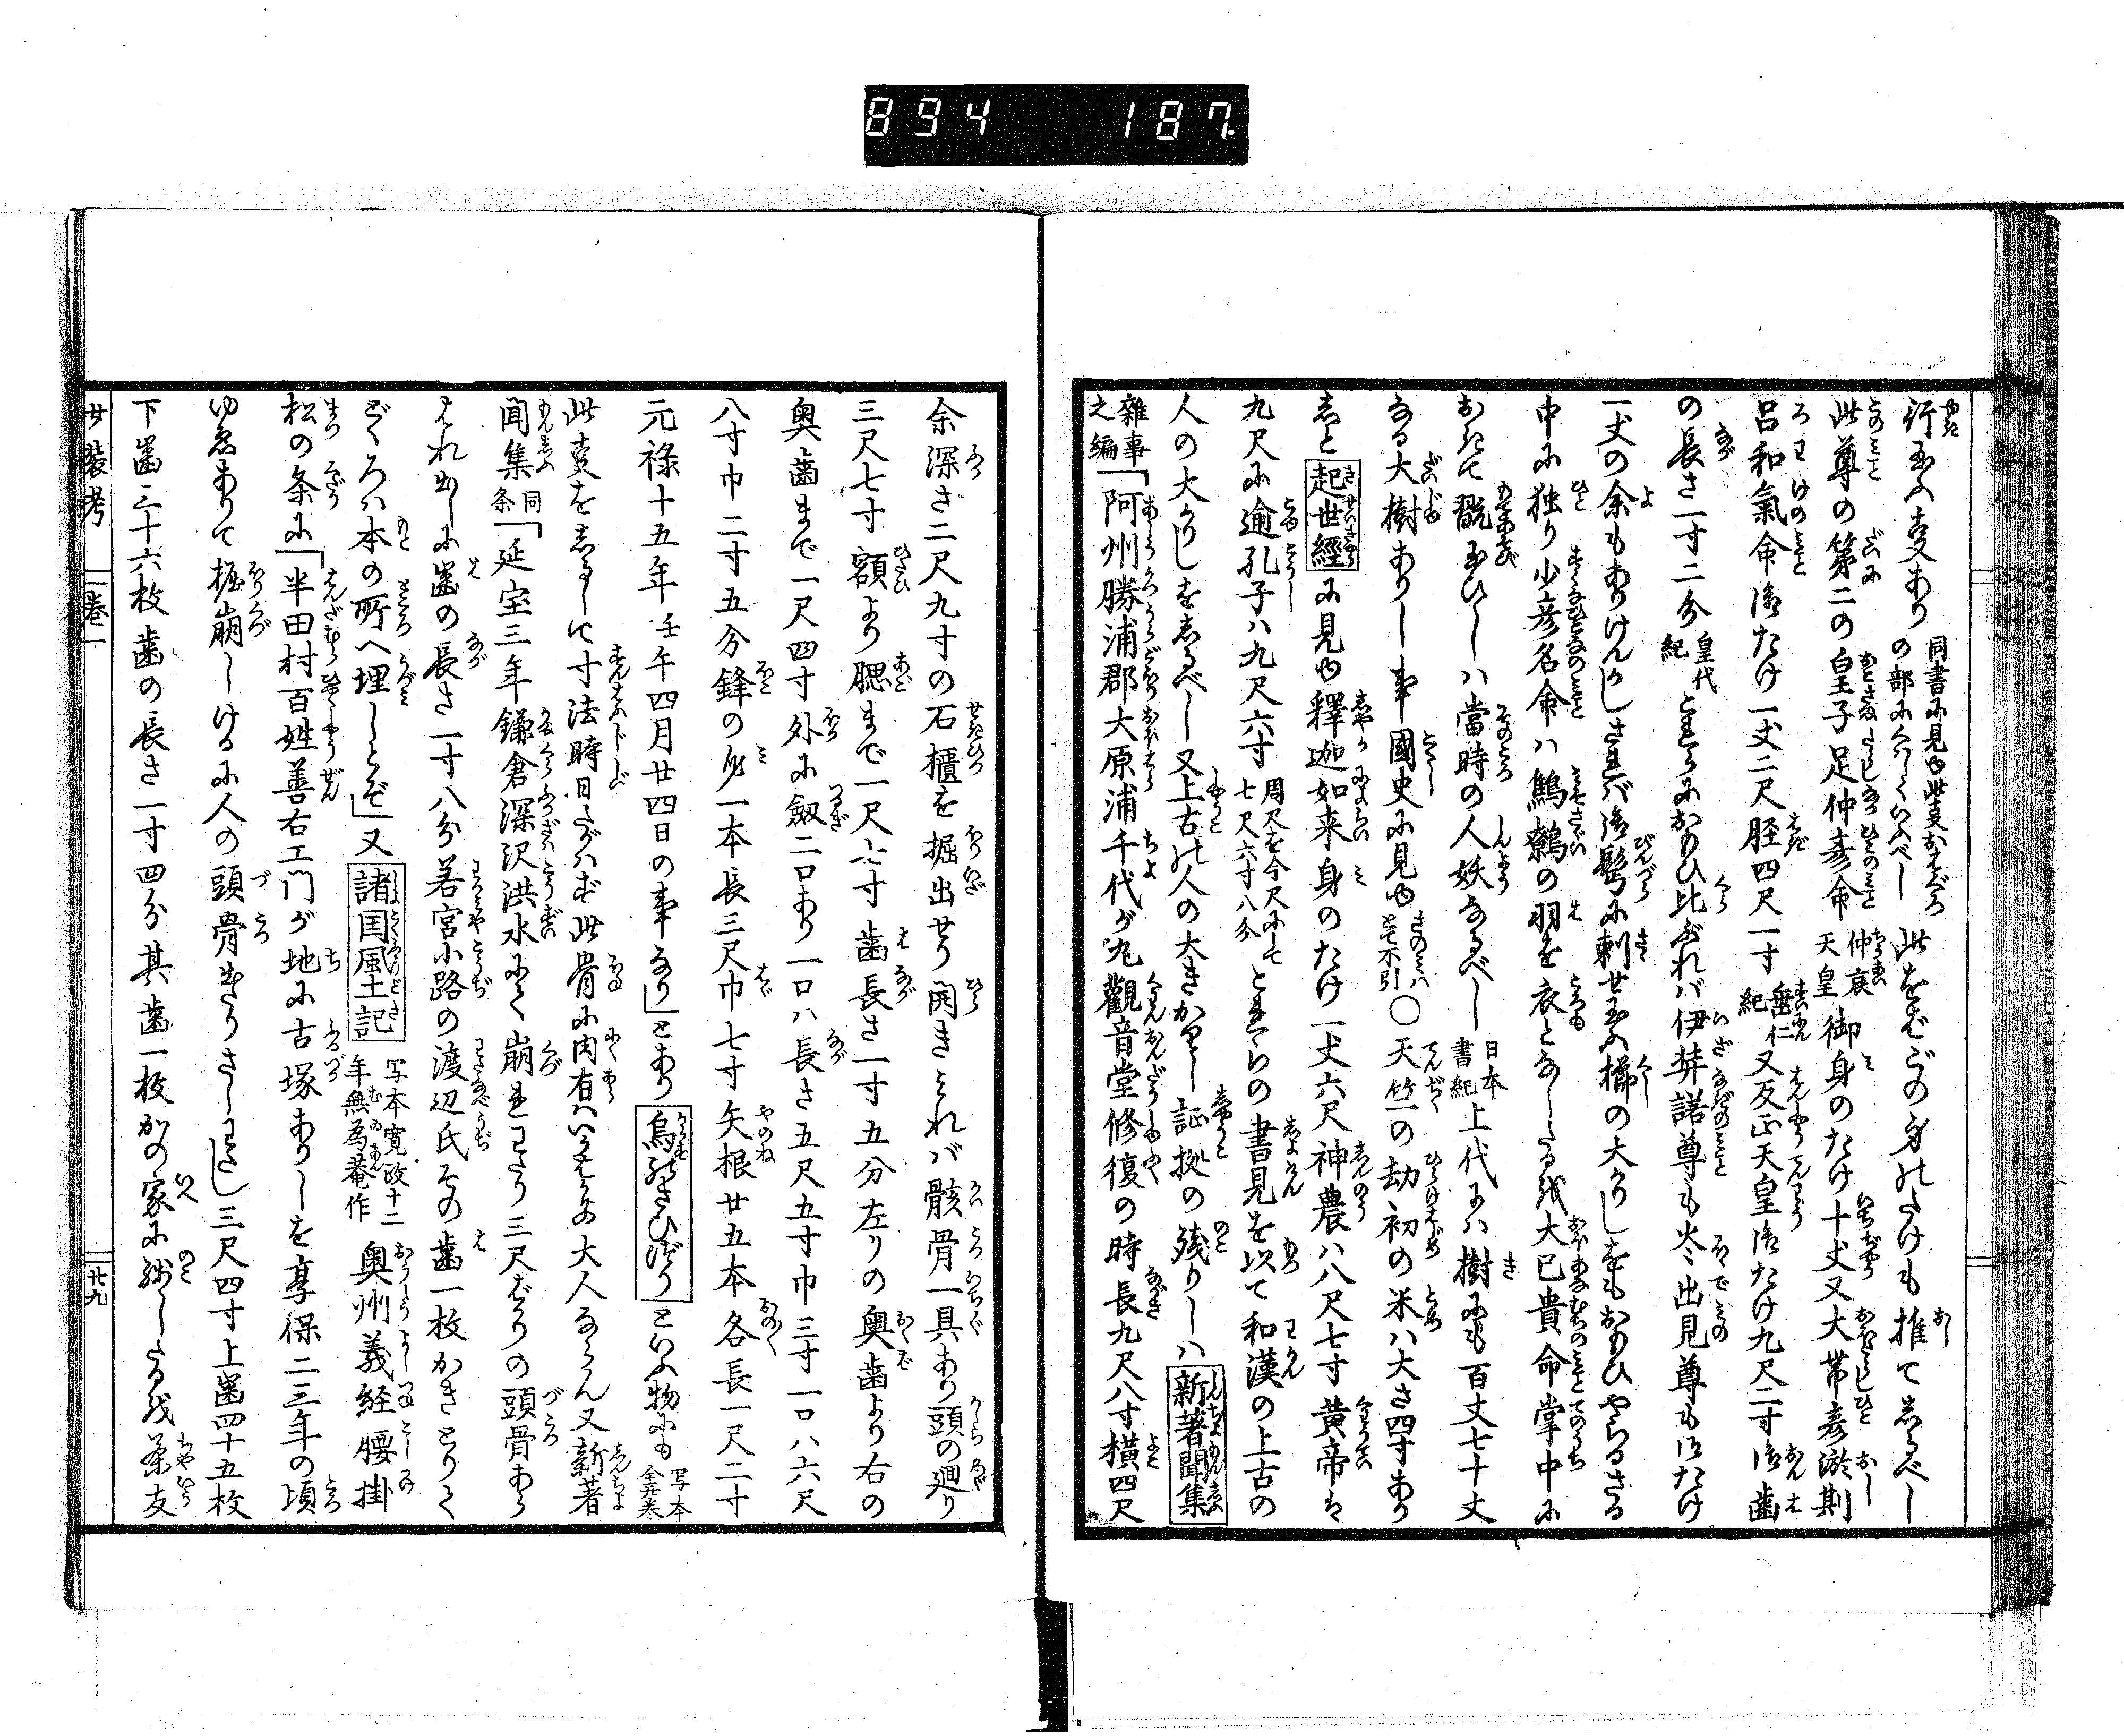 894 187.
行玉ふ事あり 同書に見ゆ此事おもしろ の部にくはしくいふべし 此をもての身のたけも推て志るべし
此尊の第二の皇子足仲彦命 仲哀天皇 御身のたけ十丈又大帯彦淤斯
呂和氣命御たけ一丈二尺脛四尺一寸 垂仁紀 又反正天皇御たけ九尺二寸御歯
の長さ一寸二分 皇代紀 これらにおもひ比ぶれバ伊弉諾尊も火々出見尊も御たけ
一丈の余もありけんかしされバ御髻に刺せ玉ふ櫛の大りしをもおもひやらるさる
中に独り少彦名命ハ鷦鷯の羽を衣となしたる我大已貴命掌中に
おきて翫玉ひしハ當時の人妖なるべし 日本書紀 上代にハ樹にも百丈七十丈
なる大樹ありし事國史に見ゆ さのみハとて不引 〇天竺の劫初の米ハ大さ四寸あり
しと起世經に見ゆ釋迦如来身のたけ一丈六尺神農ハ八尺七寸黄帝も
九尺に逾孔子ハ九尺六寸 周尺を今尺にて七尺六寸八分 これらの書見を以て和漢の上古の
人の大りしを志るべし又上古の人の大きかりし証拠の殘りしハ新著聞集
雜事之編「阿州勝浦郡大原浦千代が丸觀音堂修復の時長九尺八寸横四尺
余深さ二尺九寸の石櫃を掘出せり開きみれバ骸骨一具あり頭の廻り
三尺七寸額より腮まで一尺六寸歯長さ一寸五分左りの奥歯より右の
奥歯まで一尺四寸外に劔二口あり一口ハ長さ五尺五寸巾三寸一口ハ六尺
八寸巾二寸五分鋒の身一本長三尺巾七寸矢根廿五本各長一尺二寸
元祿十五年壬午四月廿四日の事なり」とあり烏おさひづりといふ物にも 写本全五巻
此事を志るして寸法時日たがはず此骨に肉有ハいかばかりの大人ならん又新著
聞集 同条「延宝三年鎌倉深沢洪水にて崩れわたり三尺ばかりの頭骨あら
はれ出しに歯の長さ一寸八分若宮小路の渡辺氏その歯一枚かきとりて
どくろハ本の所へ埋しとぞ」又諸国風土記 写本寛政十二年無為菴作 奥州義経腰掛
松の条に「半田村百姓善右エ門が地に古塚ありしを享保二三年の頃
ゆゑありて掘崩しけるに人の頭骨出たりさしわたし三尺四寸上歯四十五枚
下歯三十六枚歯の長さ一寸四分其歯一枚かの家に殘したる我茶友
廿裝考 卷一 廿九